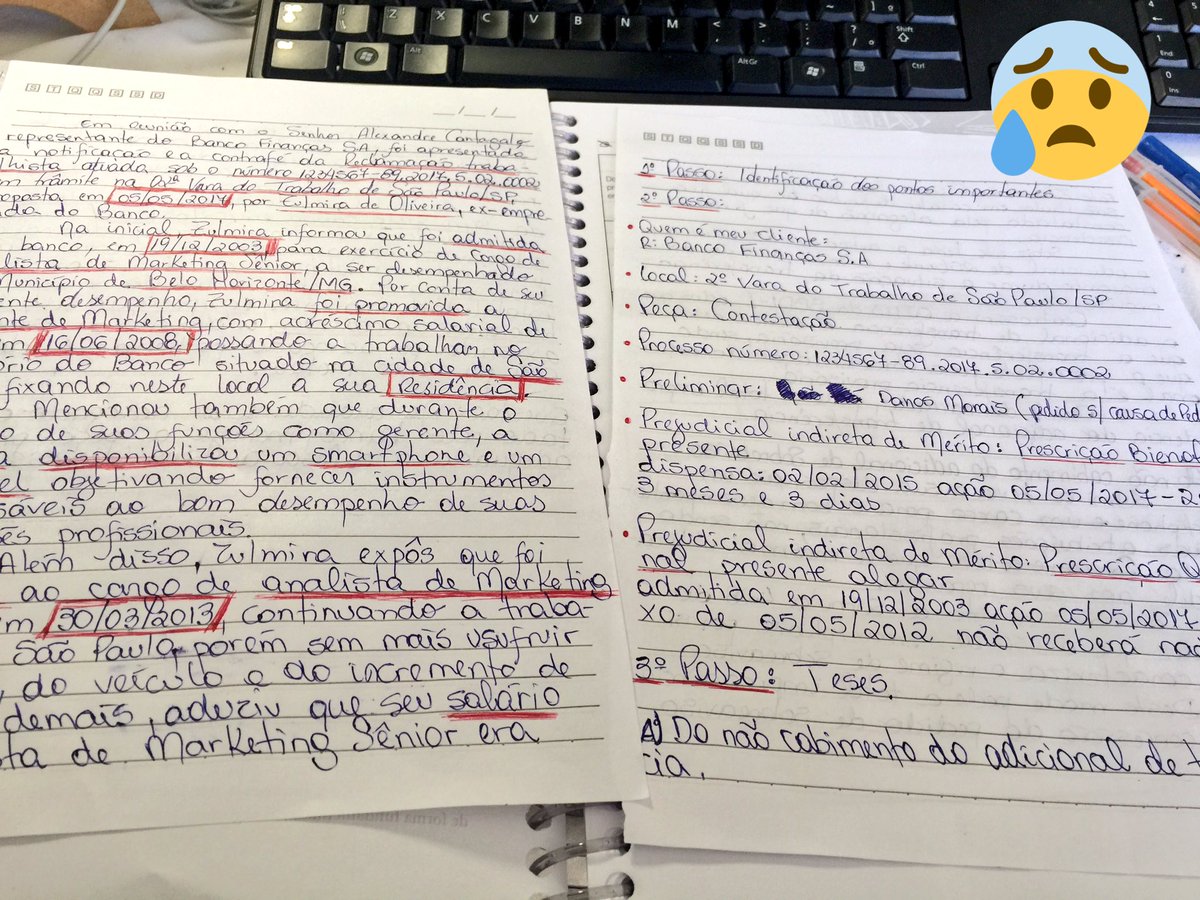 Em reunião com o Senhor Alexandre Cantagalo
representante do Banco Finanças SA, foi apresentada
a notificação e a contrafé da Reclamação traba-
lhista atuada sob o número 1234567-89.2017.5.02.0002
m trâmite na 02ª Vara do Trabalho de São Paulo/SP,
oposta em 05/05/2017, por Zulmira de Oliveira, ex-empre
ada do Banco.
Na inicial, Zulmira informou que foi admitida
banco, em 19/12/2003, para exercício de cargo de
lista de Marketing Sênior, a ser desempenhado
Município de Belo Horizonte/MG. Por conta de seu
ente desempenho, Zulmira foi promovida a
nte de Marketing, com acréscimo salarial de
m 16/06/2008, possando a trabalhar no
ório do Banco situado na cidade de São
fixando neste local a sua Residência.
Mencionou também que durante o
o de suas funções como gerente, a
a disponibilizou um smartphone e um
el objetivando fornecer instrumentos
sáveis ao bom desempenho de suas
ões profissionais.
Além disso, Zulmira expôs que foi
ao cargo de analista de Marketing
m 30/03/2013, continuando a traba-
São Paulo, porém sem mais usufruir
, do veículo e do incremento de
demais, aduziu que seu salário
sta de Marketing Sênior era
1º Passo: Identificação dos pontos importantes
2º Passo:
• Quem é meu cliente:
R: Banco Finanças S.A
• Local: 2ª Vara do Trabalho de São Paulo/SP
• Peça: Contestação
• Processo número: 1234567-89.2017.5.02.0002
• Preliminar: Danos Morais (pedido s/ causa de Ped
• Prejudicial indireta de Mérito: Prescrição Bienal
presente
dispensa: 02/02/2015 ação 05/05/2017 - 2
3 meses e 3 dias
• Prejudicial indireta de Mérito: Prescrição Q
nal presente alegar
admitida em 19/12/2003 ação 05/05/2017
xo de 05/05/2012 não receberá nad
3º Passo: Teses.
A) Do não cabimento do adicional de t
cia.